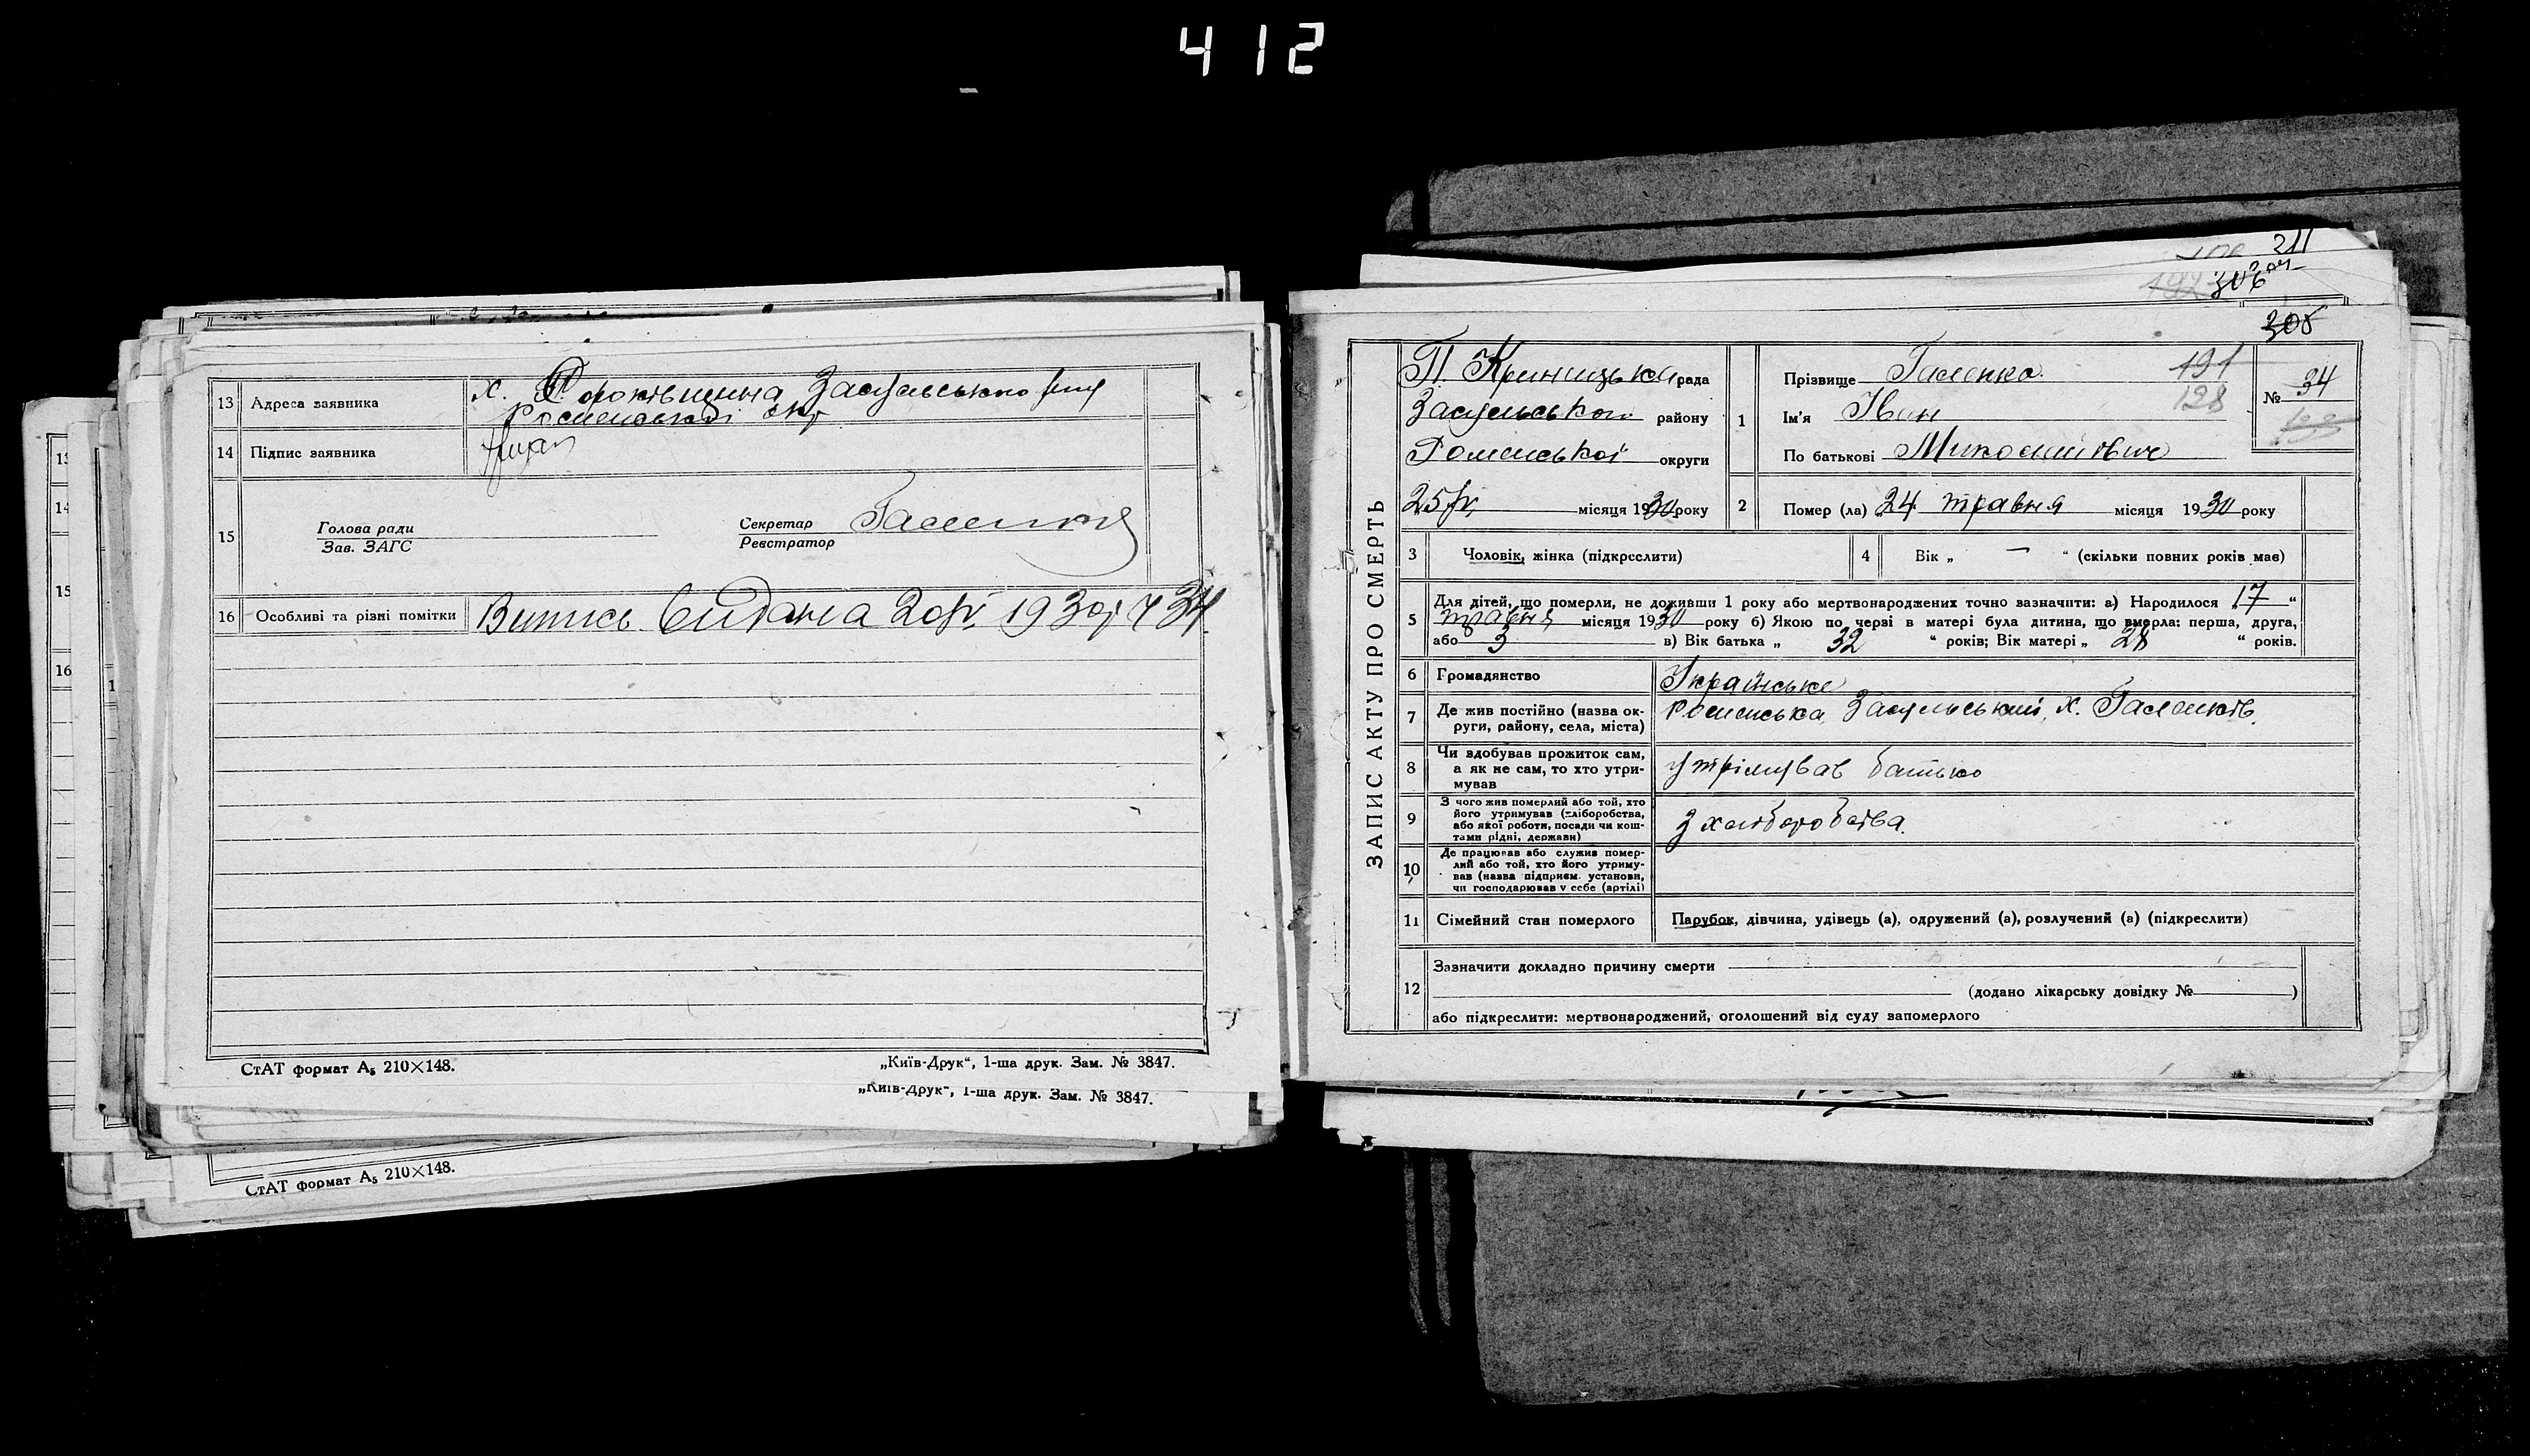 412
13 Адреса заявника х. Засульського
Роменської окр
14 Підпис заявника
15 Голова ради
Зав. ЗАГС
Секретар Галенко
Реєстратор
16 Особливі та різні помітки Випись видана 1930р ч 34
СтАТ формат А5 210×148.
„Київ-Друк“, 1-ша друк. Зам. № 3847.
„Київ-Друк“, 1-ша друк. Зам. № 3847.
СтАТ формат А5 210×148.
13
14
15
16
1
211
306
305
ЗАПИС АКТУ ПРО СМЕРТЬ
П. Криницька рада
Засульського району
Роменської округи
25 місяця 1930 року
1 Прізвище Галенко 191
Ім’я Іван 128
По батькові Миколайович
№ 34
2 Помер (ла) „24 травня місяця 1930 року
3 Чоловік, жінка (підкреслити)
4 Вік „ — “ (скільки повних років має)
5 Для дітей, що померли, не доживши 1 року або мертвонароджених точно зазначити: а) Народилося „17“
травня місяця 1930 року б) Якою по черзі в матері була дитина, що вмерла: перша, друга,
або 3 в) Вік батька „ 32 “ років; Вік матері „ 28 “ років.
6 Громадянство Українське
7 Де жив постійно (назва ок-
руги, району, села, міста) Роменська Засульський, х. Галенків.
8 Чи здобував прожиток сам,
а як не сам, то хто утри-
мував утрімував батько
9 З чого жив померлий або той, хто
його утримував (хліборобства,
або якої роботи, посади чи кош-
тами рідні, держави) з хліборобства.
10 Де працював або служив помер-
лий або той, хто його утриму-
вав (назва підприєм. установи,
чи господарював у себе (артілі)
11 Сімейний стан померлого Парубок, дівчина, удівець (а), одружений (а), розлучений (а) (підкреслити)
12 Зазначити докладно причину смерти
(додано лікарську довідку № )
або підкреслити: мертвонароджений, оголошений від суду запомерлого